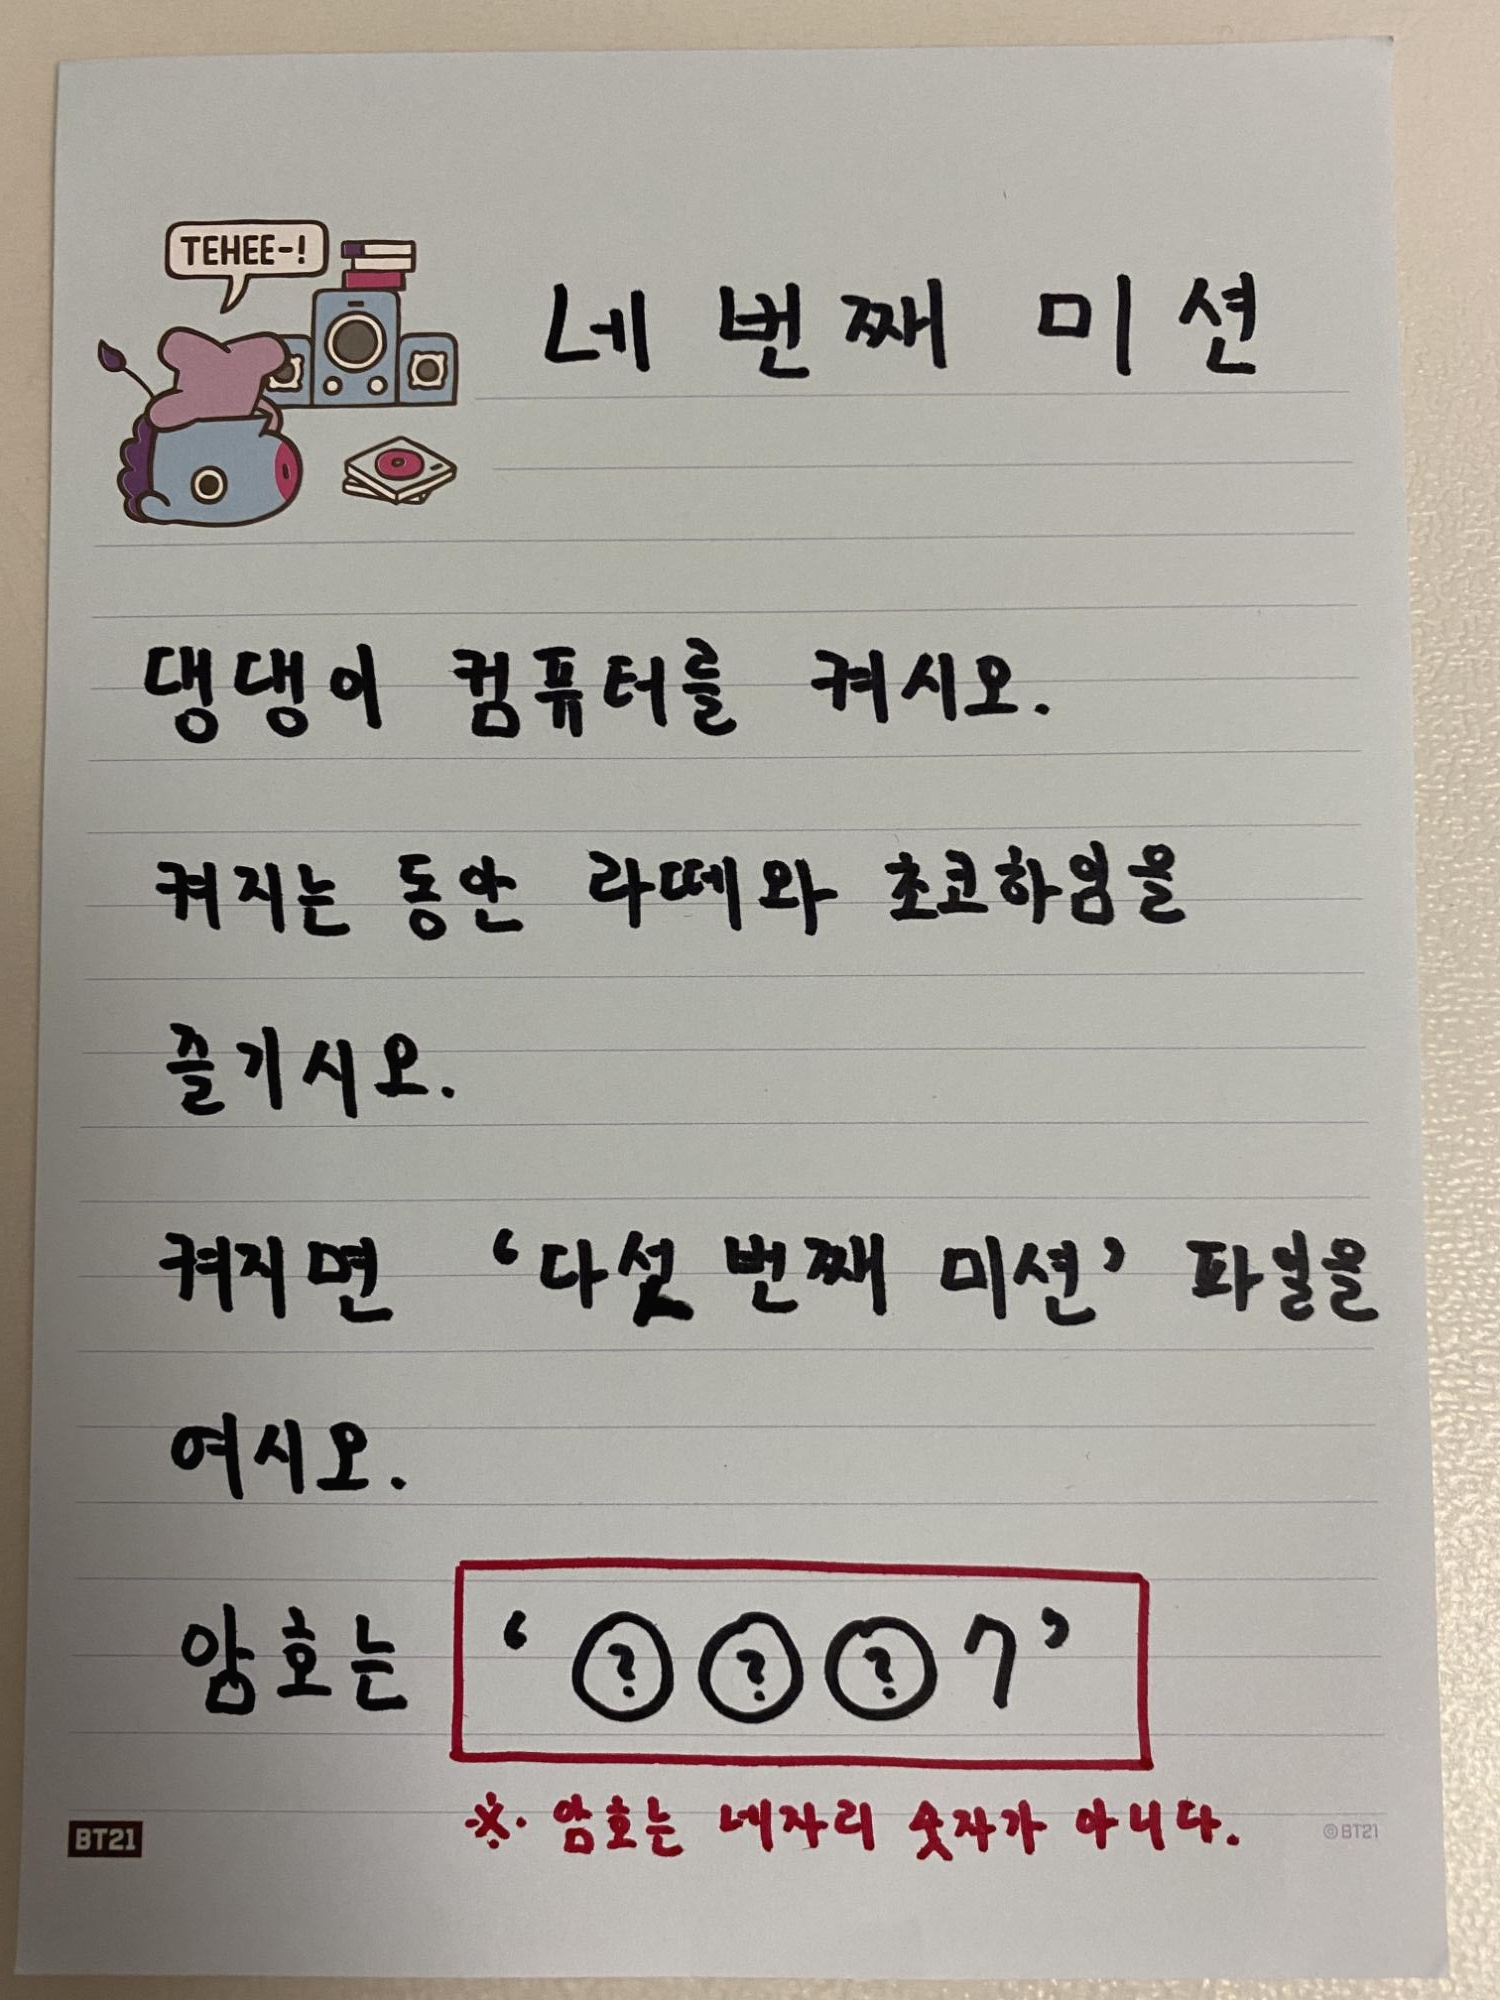 TEHEE-!
네 번째 미션
댕댕이 컴퓨터를 켜시오.
켜지는 동안 라떼와 초코하임을
즐기시오.
켜지면 ‘다섯 번째 미션’ 파일을
여시오.
암호는 ‘???7’
※. 암호는 네자리 숫자가 아니다.
BT21
©BT21